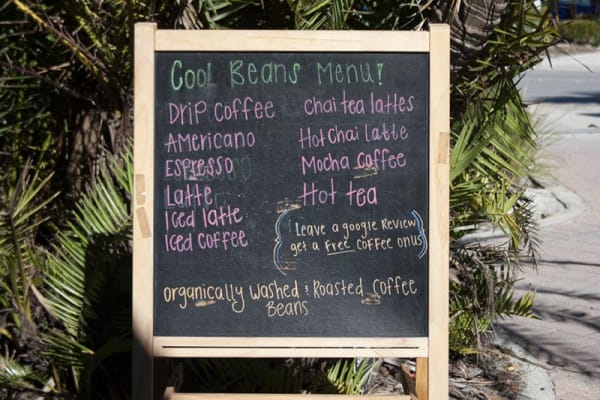 Cool Beans Menu!
Drip Coffee
Americano
Espresso
Latte
Iced latte
Iced coffee
chai tea lattes
Hot Chai latte
Mocha coffee
Hot tea
Leave a google Review
get a free coffee onus
organically washed & Roasted coffee
Beans